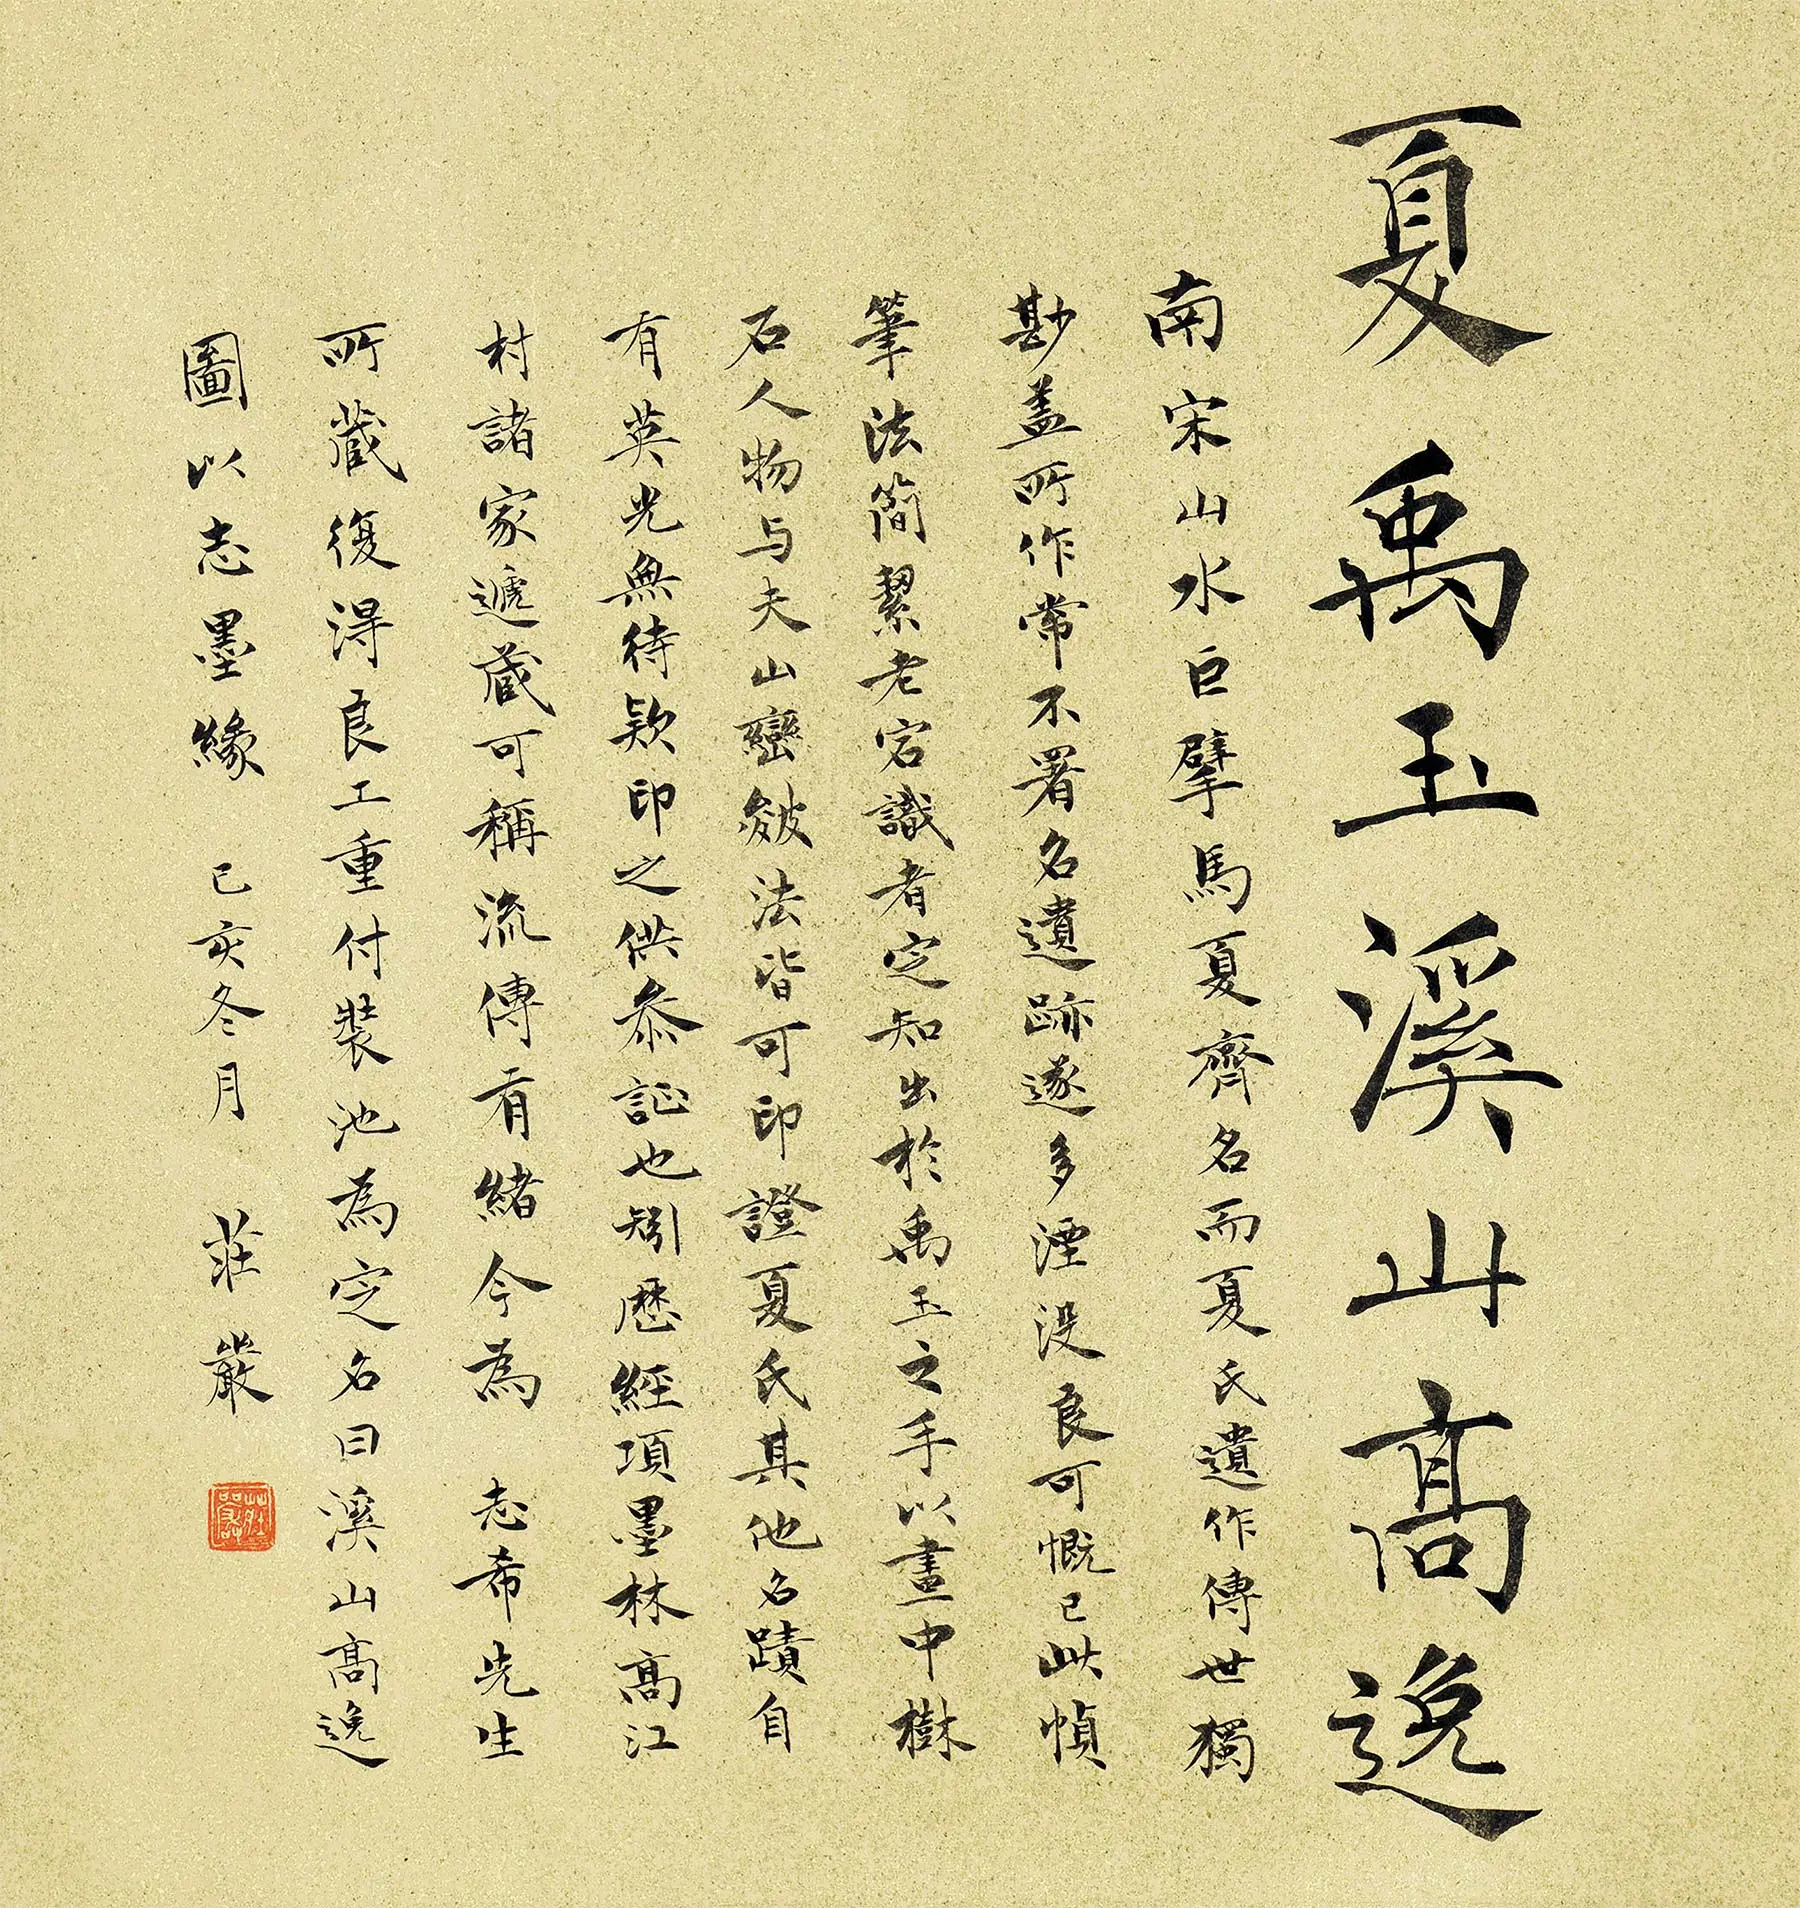 夏禹玉溪山高逸
南宋山水巨擘馬夏齊名而夏氏遺作傳世獨
尠盖所作常不署名遺跡遂多湮没良可慨已此幀
筆法簡絜老宕識者定知出於禹玉之手以畫中樹
石人物与夫山巒皴法皆可印證夏氏其他名蹟自
有英光無待欵印之供叅証也矧歷經項墨林高江
村諸家遞蔵可稱流傳有緒今為 志希先生
所蔵復得良工重付裝池為定名曰溪山高逸
圖以志墨緣 己亥冬月 莊嚴
莊嚴